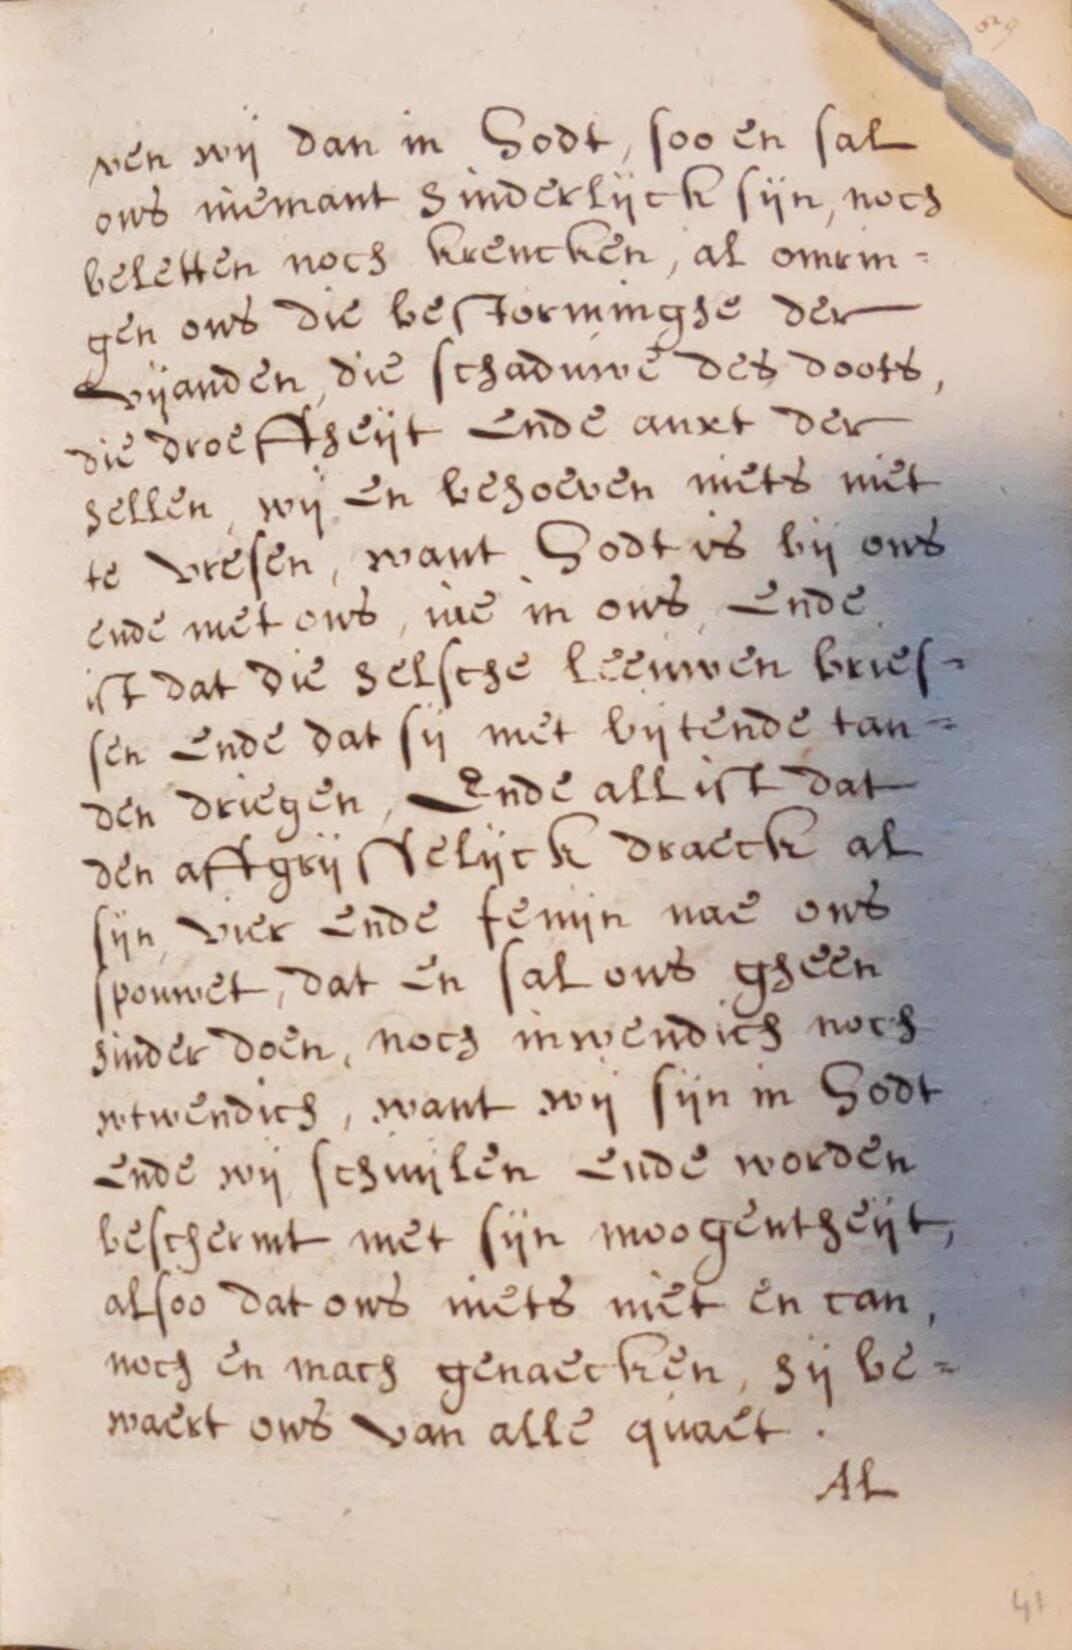 ven wij dan in Godt, soo en sal
ons niemant hinderlijck sijn, noch
beletten noch krencken, al omrin=
gen ons die bestorminghe der
vijanden, die schaduwe des doots,
die droeffheijt ende anxt der
hellen, wij en behoeven niets niet
te vresen, want Godt is bij ons
ende met ons, iae in ons, Ende
ist dat die helsche leeuwen bries=
sen ende dat sij met bijtende tan=
den driegen, Ende all ist dat
den affgrijsselijck draeck al
sijn vier ende fenijn nae ons
spouwet, dat en sal ons gheen
hinder doen, noch inwendich noch
wtwendich, want wij sijn in Godt
ende wij schuijlen ende worden
beschermt met sijn moogentheijt,
alsoo dat ons niets niet en can,
noch en mach genaecken, hij be=
waert ons van alle quaet.
Al
41